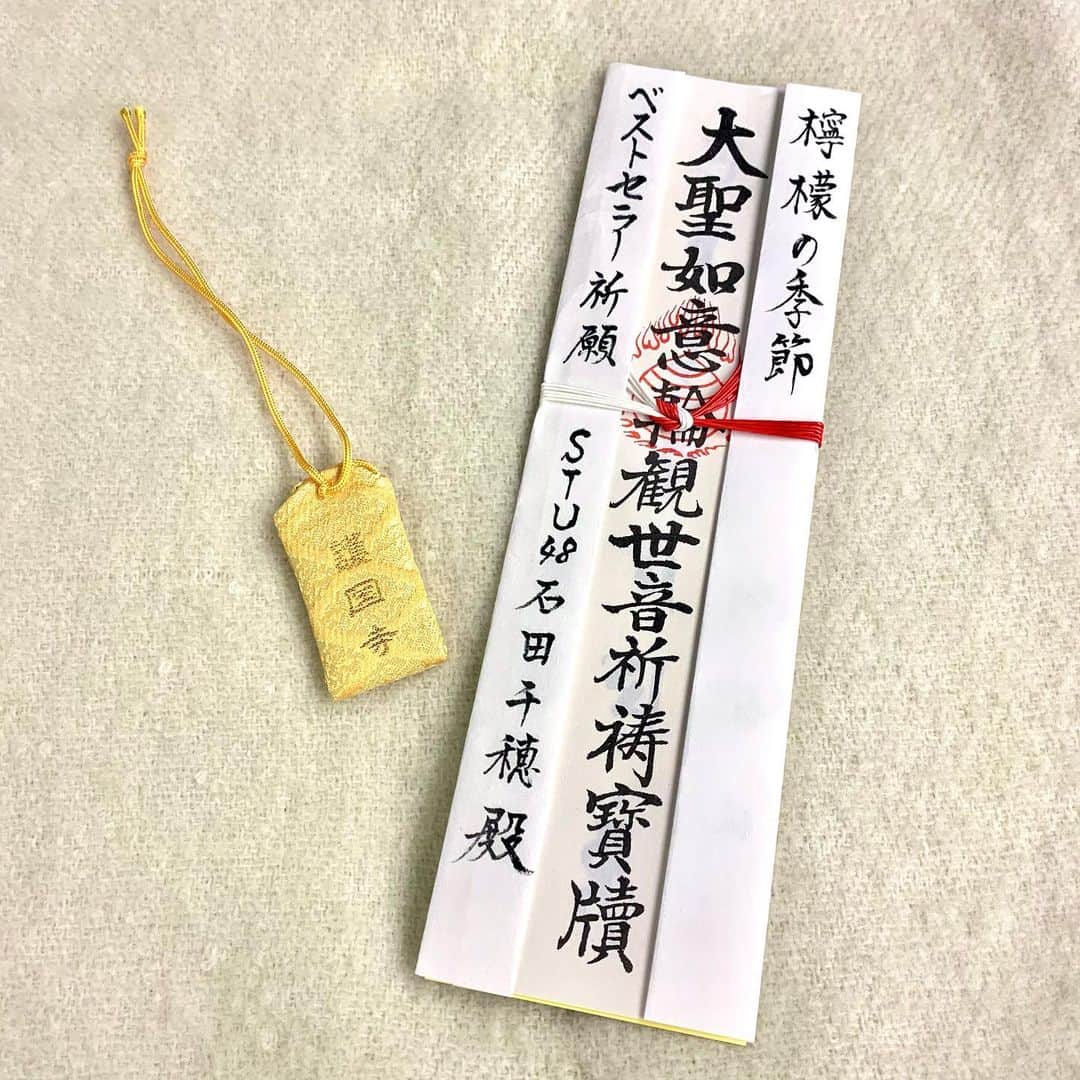 檸檬の季節
大聖如意輪観世音祈祷寶牘
ベストセラー祈願
STU48石田千穂殿
護国寺